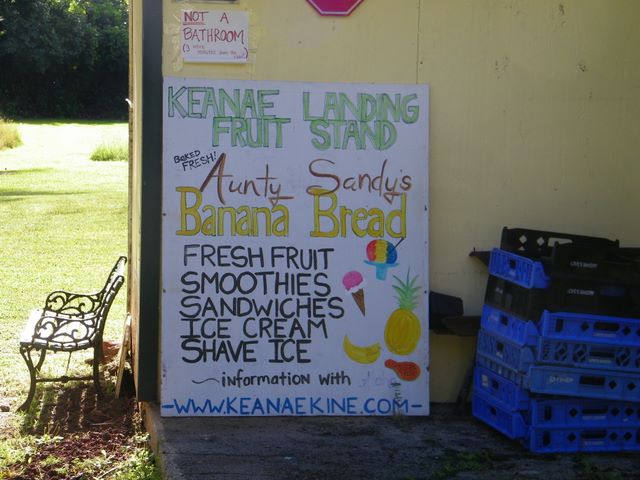 NOT A
BATHROOM
(3 more
minutes down the road)
KEANAE LANDING
FRUIT STAND
BAKED
FRESH!
Aunty Sandy's
Banana Bread
FRESH FRUIT
SMOOTHIES
SANDWICHES
ICE CREAM
SHAVE ICE
~information with aloha
-WWW.KEANAEKINE.COM-